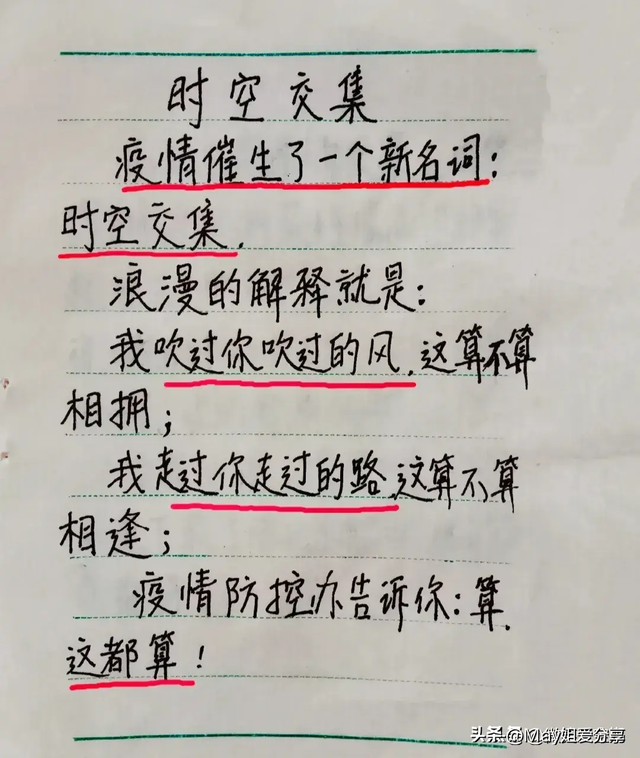 时空交集
疫情催生了一个新名词：
时空交集．
浪漫的解释就是：
我吹过你吹过的风，这算不算
相拥；
我走过你走过的路，这算不算
相逢；
疫情防控办告诉你：算，
这都算！